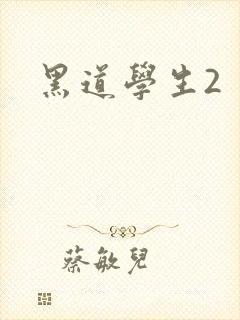 黑道學生2
蔡敏兒